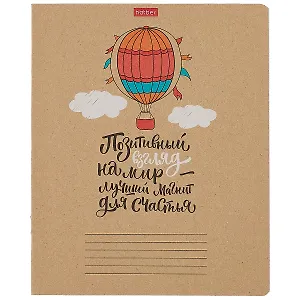 Hatber
Позитивный
взгляд
на мир —
лучший магнит
для счастья